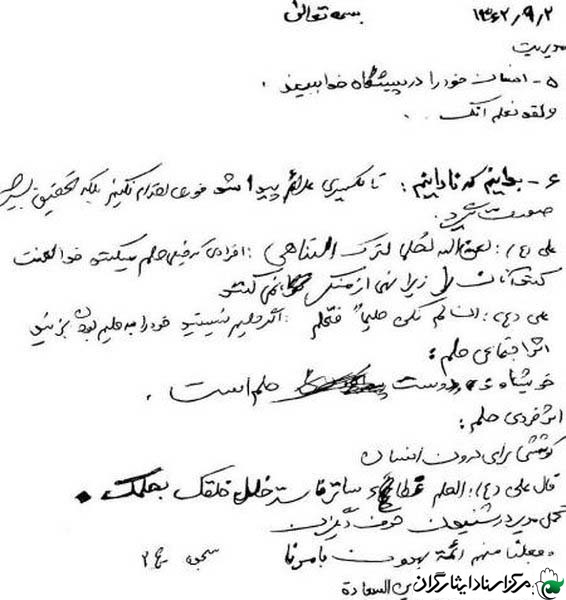 بسمه تعالی ۱۳۶۲/۹/۲
مدیریت
۵- انسان خود را در پیشگاه خدا ببیند.
و لقد نعلم انک ...
۶- بدانیم که نادانیم: تا مسأله‌ای پیدا شد فوری اقدام نکنیم بلکه تحقیق
صورت گیرد.
علی (ع): لعن الله لترک التناهی: افرادی که خیلی حلم میکنند خدا لعنت
کند آنان را زیرا نهی از منکر نمی کنند
علی (ع): ان لم تکن حلیما فتحلم: اگر حلیم نیستید خود را به حلیم بودن بزنید
اثر اجتماعی حلم:
خویشاوند و دوست حلم است.
اثر فردی حلم:
پوششی برای درون انسان
قال علی (ع): الحلم غطاء ساتر فاستر خلل خلقک بحلمک.
تحمل مدیر در شنیدن حرف دیگران
و جعلنا منهم ائمة یهدون بامرنا سجده ۲۴
السعادة
مرکز اسناد ایثارگران